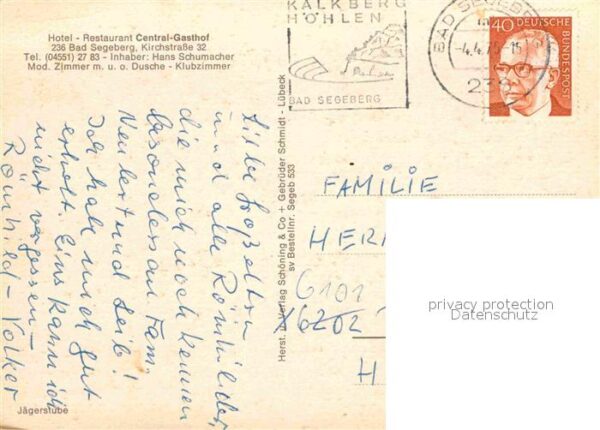 Hotel - Restaurant Central-Gasthof
236 Bad Segeberg, Kirchstraße 32
Tel. (04551) 27 83 - Inhaber: Hans Schumacher
Mod. Zimmer m. u. o. Dusche - Klubzimmer
KALKBERG
HÖHLEN
BAD SEGEBERG
BAD SEGEBE
-4.4.75-15
236
40 DEUTSCHE
BUNDESPOST
Liebe Großeltern
und alle Römhilder,
die mich noch kennen
besonders an Fam.
Neubert und Leib!
Ich habe mich gut
erholt. Eins kann ich
nicht vergessen -
Römhild - Volker
Jägerstube
Herst. u. Verlag Schöning & Co + Gebrüder Schmidt - Lübeck
sv Bestellnr. Segeb 533
FAMILIE
HER
6101
6202
H
privacy protection
Datenschutz